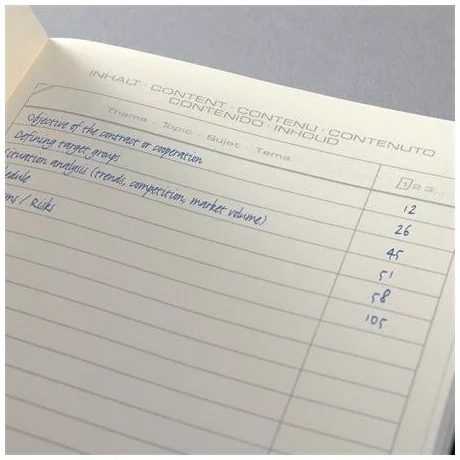 INHALT · CONTENT · CONTENU · CONTENUTO
CONTENIDO · INHOUD
Thema · Topic · Sujet · Tema
1 2 3 ...
Objective of the contract or cooperation 12
Defining target groups 26
Situation analysis (trends, competition, market volume) 45
edule 51
/ Risks 58
105